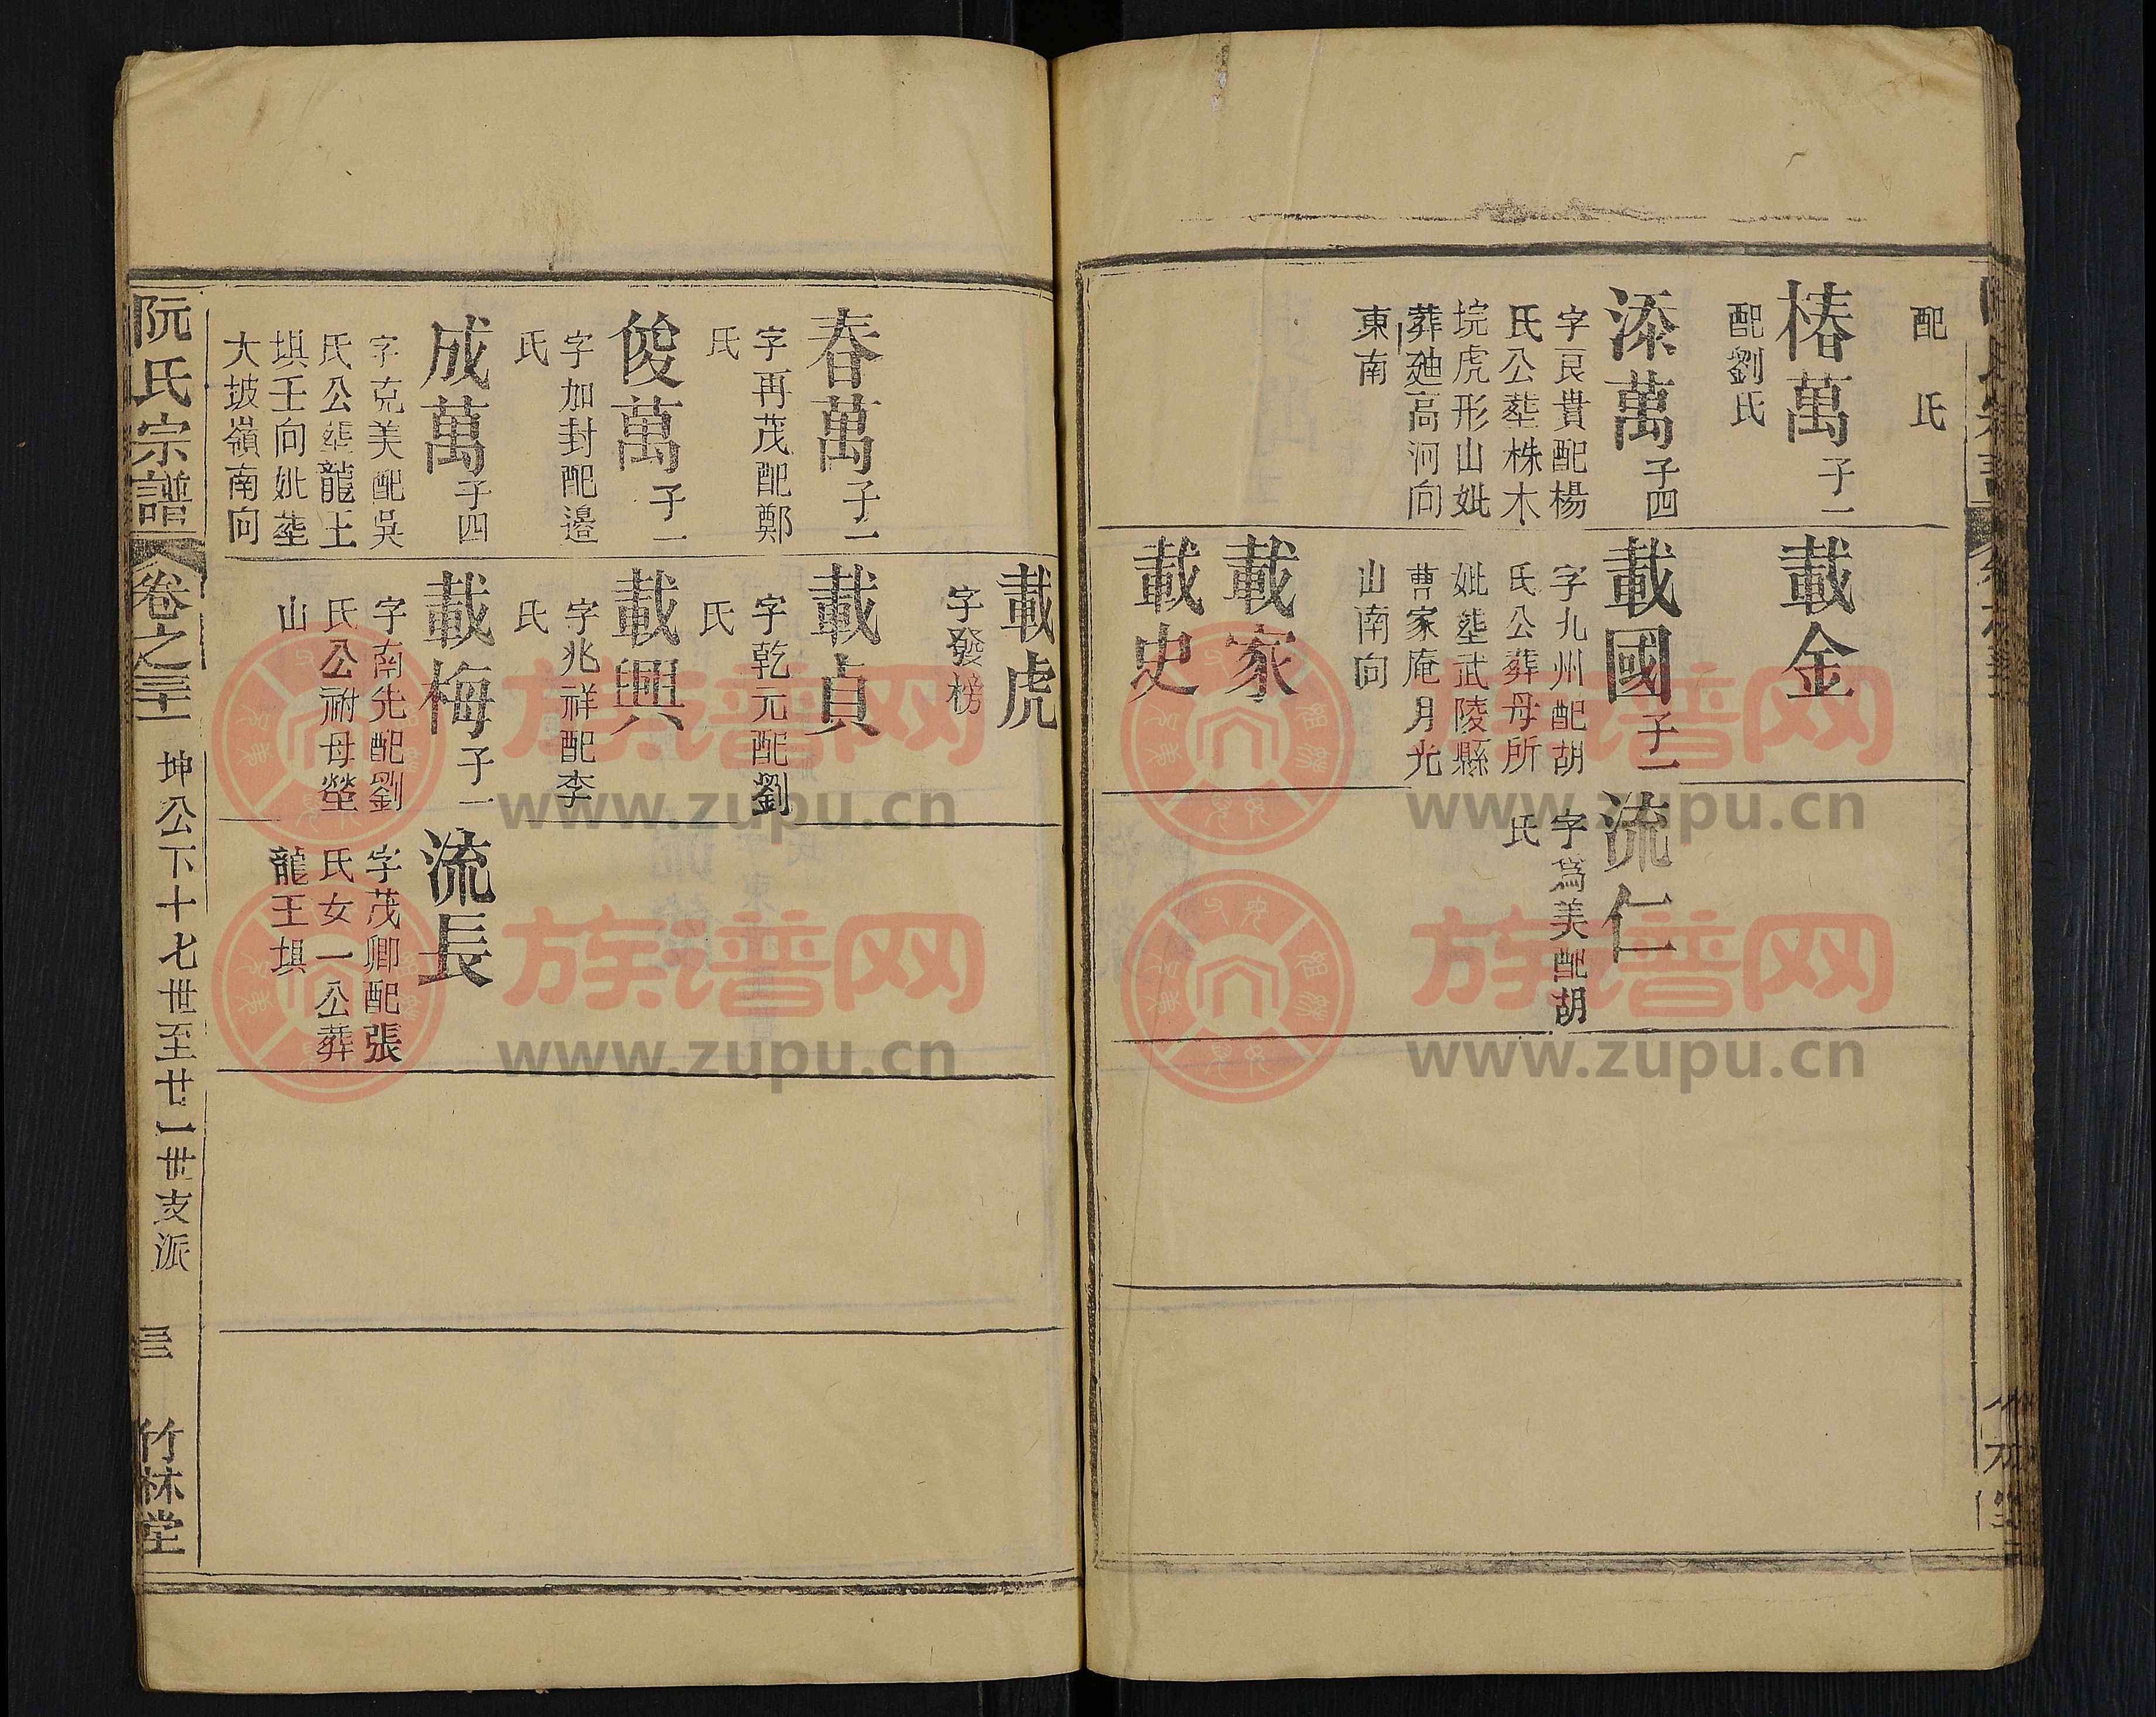 配　氏
椿萬子一
配劉氏
添萬子四
字良貴配楊
氏公塟株木
垸虎形山妣
葬廸高河向
東南
載金
載國子一
字九州配胡
氏公葬母所
妣塟武陵縣
曹家庵月光
山南向
載家
載史
流仁
字為美配胡
氏
載虎
字發榜
春萬子一
字再茂配鄭
氏
俊萬子一
字加封配邉
氏
成萬子四
字克美配吳
氏公塟龍王
垻壬向妣塟
大坡嶺南向
載貞
字乾元配劉
氏
載興
字兆祥配李
氏
載梅子一
字南先配劉
氏公祔母塋
山
流長
字茂卿配張
氏女一公葬
龍王垻
阮氏宗譜
卷之三十一
坤公下十七世至廿一世支派
三
竹林堂
族谱网
www.zupu.cn
族谱网
www.zupu.cn
族谱网
www.zupu.cn
族谱网
www.zupu.cn